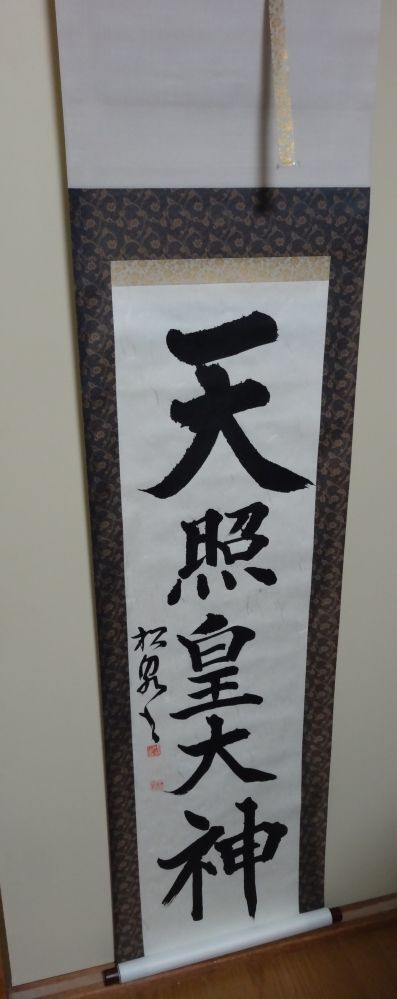 天照皇大神
松泉書